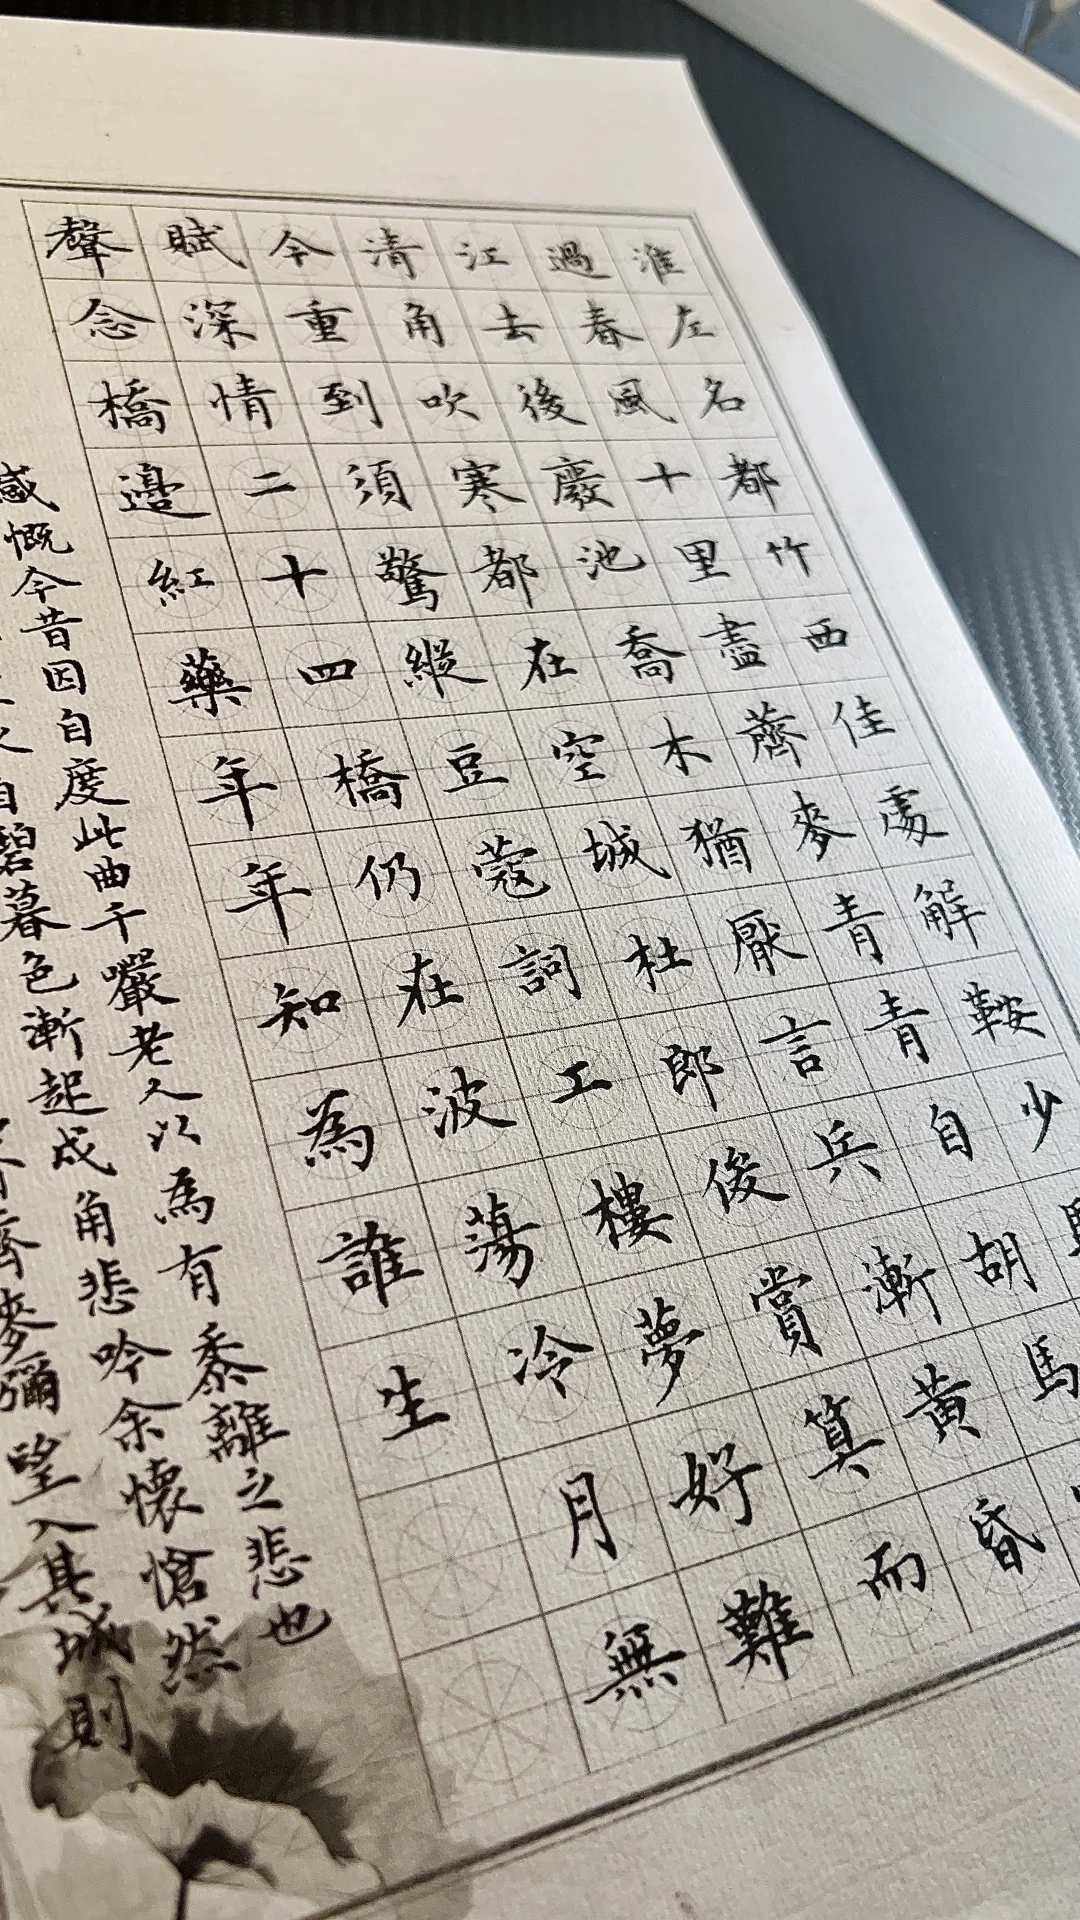 淮左名都竹西佳處解鞍少
過春風十里盡薺麥青青自胡馬
江去後廢池喬木猶厭言兵漸黃昏
清角吹寒都在空城杜郎俊賞算而
今重到須驚縱豆蔻詞工樓夢好難
賦深情二十四橋仍在波蕩冷月無
聲念橋邊紅藥年年知為誰生
薺麥彌望入其城則
自碧暮色漸起戍角悲吟余懷愴然
感慨今昔因自度此曲千巖老人以為有黍離之悲也